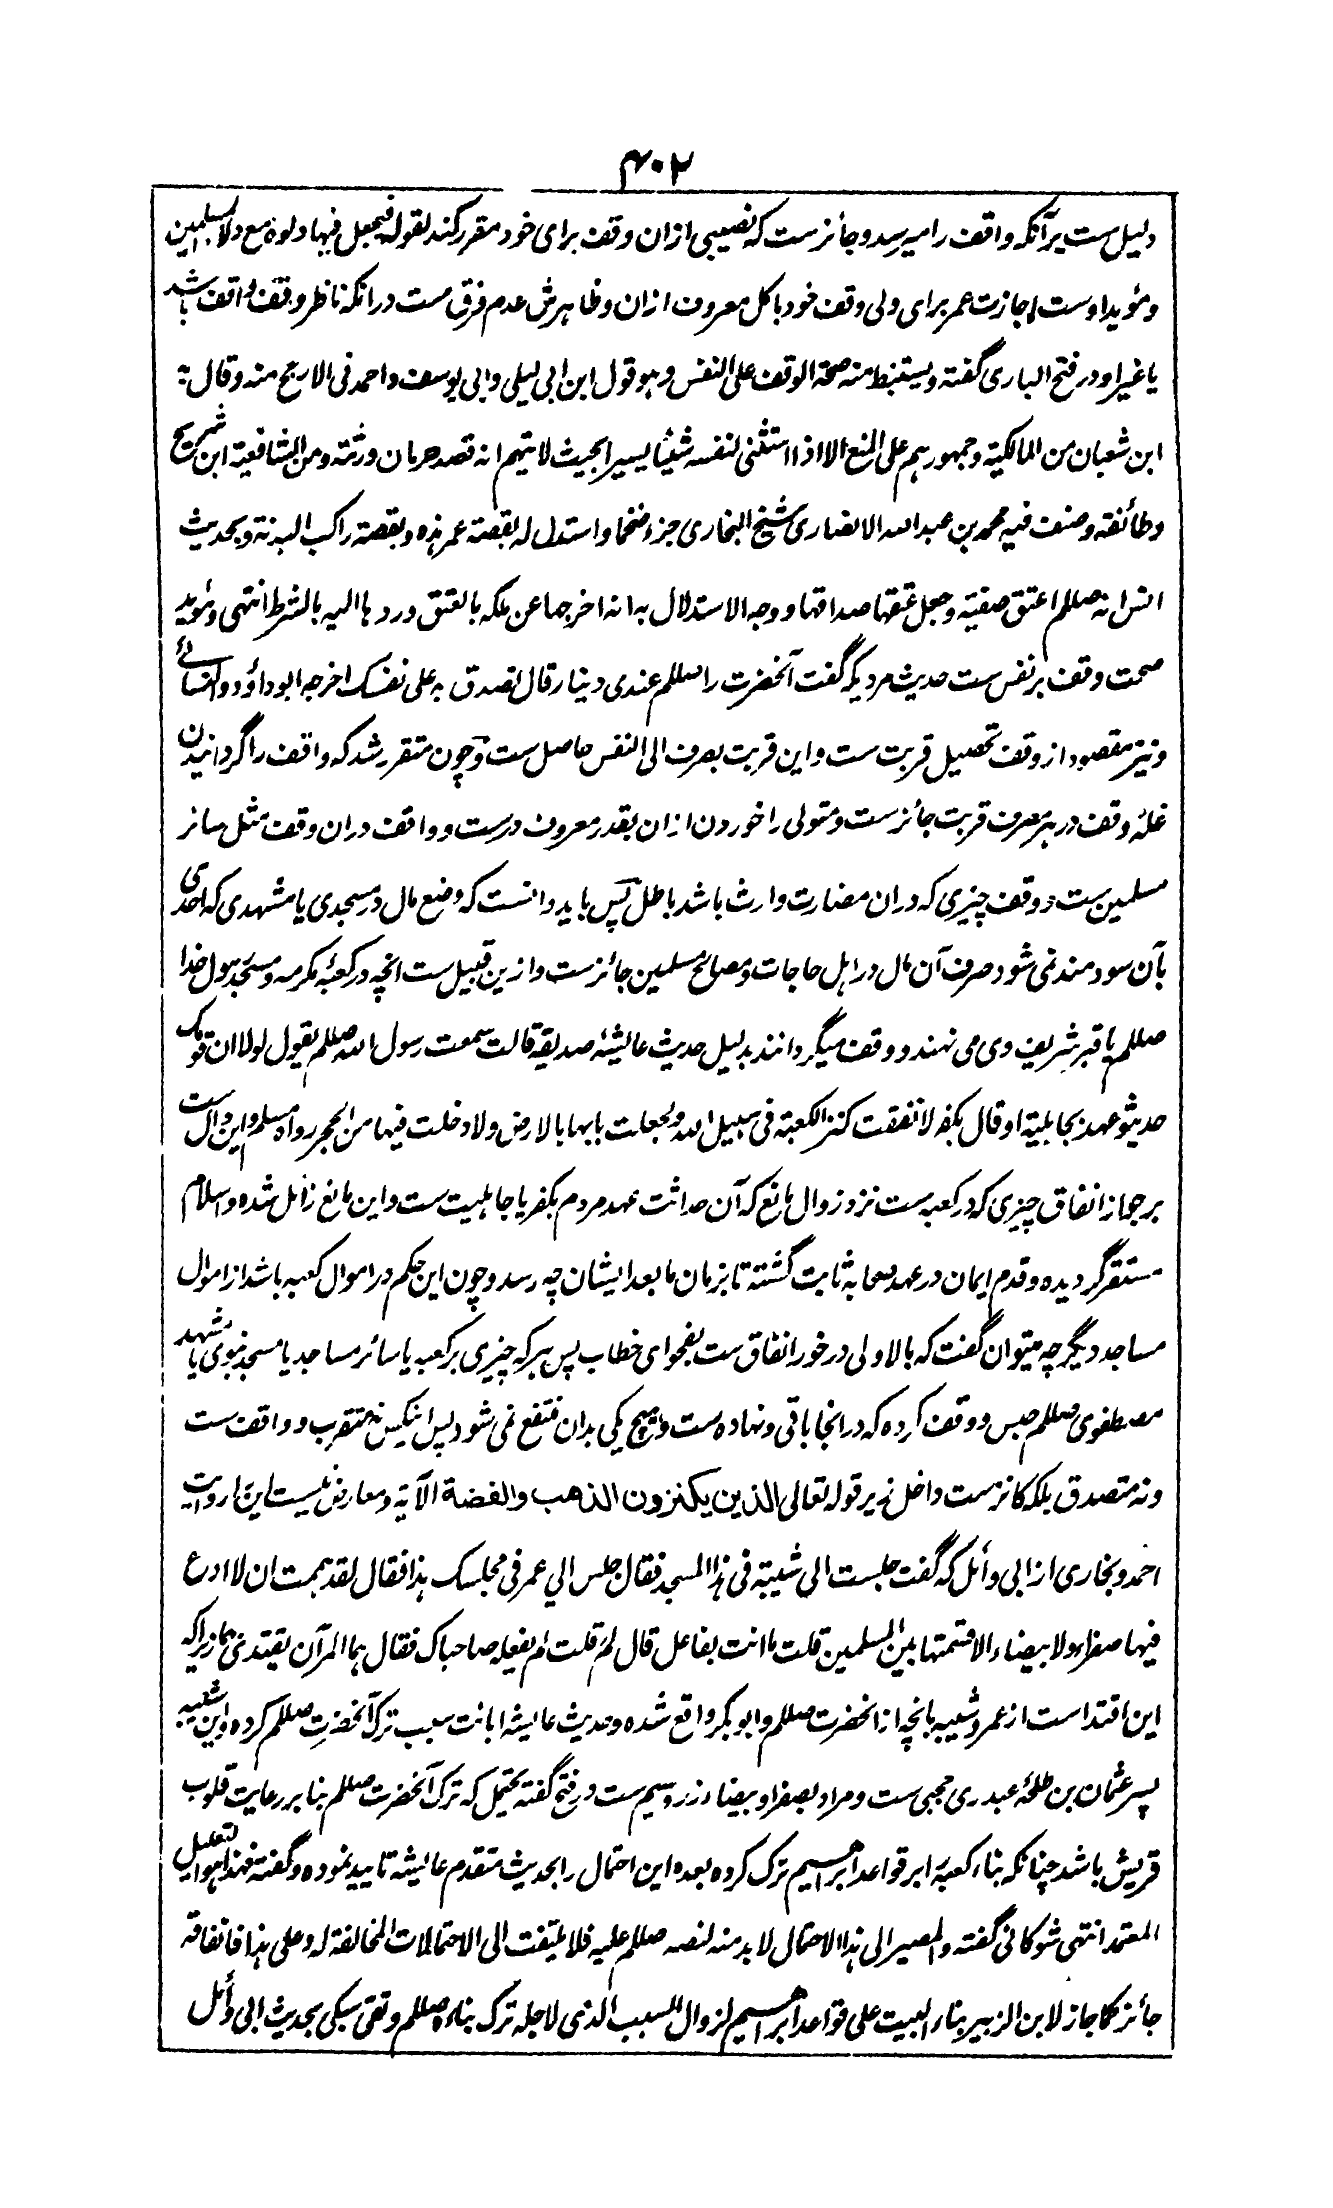 ۴۰۲
دلیل ست برآنکه واقف را میرسد و جائز ست که نصیبی ازان وقف برای خود مقرر کند لقوله فیجعل فیها دلوه مع دلاء المسلمین
و مؤید اوست اجازت عمر برای ولی وقف خود باکل معروف ازان و ظاهرش عدم فرق ست درانکه ناظر وقف واقف باشد
یا غیر او در فتح الباری گفته و یستنبط منه صحة الوقف علی النفس و هو قول ابن ابی لیلی و ابی یوسف و احمد فی الارجح منه و قال به
ابن شعبان من المالکیة و جمهورهم علی المنع الا اذا استثنی لنفسه شیئا یسیرا بحیث لا یتهم انه قصد حرمان ورثته و من الشافعیة ابن شریح
و طائفة و صنف فیه محمد بن عبدالله الانصاری شیخ البخاری جزء ضخما و استدل له بقصة عمر هذه و بقصة راکب البدنة و بحدیث
انس انه صللم اعتق صفیة و جعل عتقها صداقها و وجه الاستدلال به انه اخرجها عن ملکه بالعتق و ردها الیه بالشرط انتهی و مؤید
صحت وقف بر نفس ست حدیث مردیکه گفت آنحضرت را صللم عندی دینار قال تصدق به علی نفسک اخرجه ابوداؤد والنسائے
و نیز مقصود از وقف تحصیل قربت ست و این قربت بصرف الی النفس حاصل ست و چون متقرر شد که واقف را گردانیدن
غلۀ وقف در هر مصرف قربت جائز ست و متولی را خوردن ازان بقدر معروف درست و واقف دران وقف مثل سائر
مسلمین ست و وقف چیزی که دران مضارت وارث باشد باطل پس باید دانست که وضع مال در مسجدی یا مشهدی که احدی
بآن سودمند نمی شود صرف آن مال در اهل حاجات و مصالح مسلمین جائز ست و ازین قبیل ست انچه در کعبۀ مکرمه و مسجد رسول خدا
صللم یا قبر شریف وی می نهند و وقف میگردانند بدلیل حدیث عائشۀ صدیقه قالت سمعت رسول الله صللم یقول لولا ان قومک
حدیثو عهد بجاهلیة او قال بکفر لانفقت کنز الکعبة فی سبیل الله و لجعلت بابها بالارض و لادخلت فیها من الحجر رواه مسلم و این دال ست
بر جواز انفاق چیزی که در کعبه ست نزد زوال مانع که آن حداثت عهد مردم بکفر یا جاهلیت ست و این مانع زائل شده و اسلام
مستقر گردیده و قدم ایمان در عهد صحابه ثابت گشته تا بزمان ما بعد ایشان چه رسد و چون این حکم در اموال کعبه باشد از اموال
مساجد دیگر چه میتوان گفت که بالاولی درخور انفاق ست بفحوای خطاب پس هر که چیزی بر کعبه یا سائر مساجد یا مسجد نبوی یا مشهد
مصطفوی صللم حبس و وقف کرده که در انجا باقی و نهاده ست و هیچ یکی بدان منتفع نمی شود پس اینکس نه متقرب و واقف ست
و نه متصدق بلکه کانز ست داخل زیر قوله تعالی الذین یکنزون الذهب والفضة الآیة و معارض نیست این را روایت
احمد و بخاری از ابی وائل که گفت جلست الی شیبة فی هذا المسجد فقال جلس الی عمر فی مجلسک هذا فقال لقد هممت ان لا ادع
فیها صفراء و لا بیضاء الا قسمتها بین المسلمین قلت ما انت بفاعل قال لم قلت لم یفعله صاحباک فقال هما المرآن یقتدی بهما زیراکه
این اقتداست از عمر و شیبه بانچه از انحضرت صللم و ابوبکر واقع شده و حدیث عائشه ابانت سبب ترک آنحضرت صللم کرده و این شیبه
پسر عثمان بن طلحۀ عبدری حجبی ست و مراد بصفراء و بیضاء زر و سیم ست در فتح گفته یحتمل که ترک آنحضرت صللم بنابر رعایت قلوب
قریش باشد چنانکه بناء کعبه را بر قواعد ابراهیم ترک کرده بعده این احتمال را بحدیث متقدم عائشه تایید نموده و گفته فهذا هو التعلیل
المعتمد انتهی شوکانی گفته و المصیر الی هذا الاحتمال لا بد منه لنصه صللم علیه فلا یلتفت الی الاحتمالات المخالفة له و علی هذا فانفاقه
جائز کما جاز لابن الزبیر بناء البیت علی قواعد ابراهیم لزوال السبب الذی لاجله ترک بناءه صللم و تقی سبکی بحدیث ابی وائل